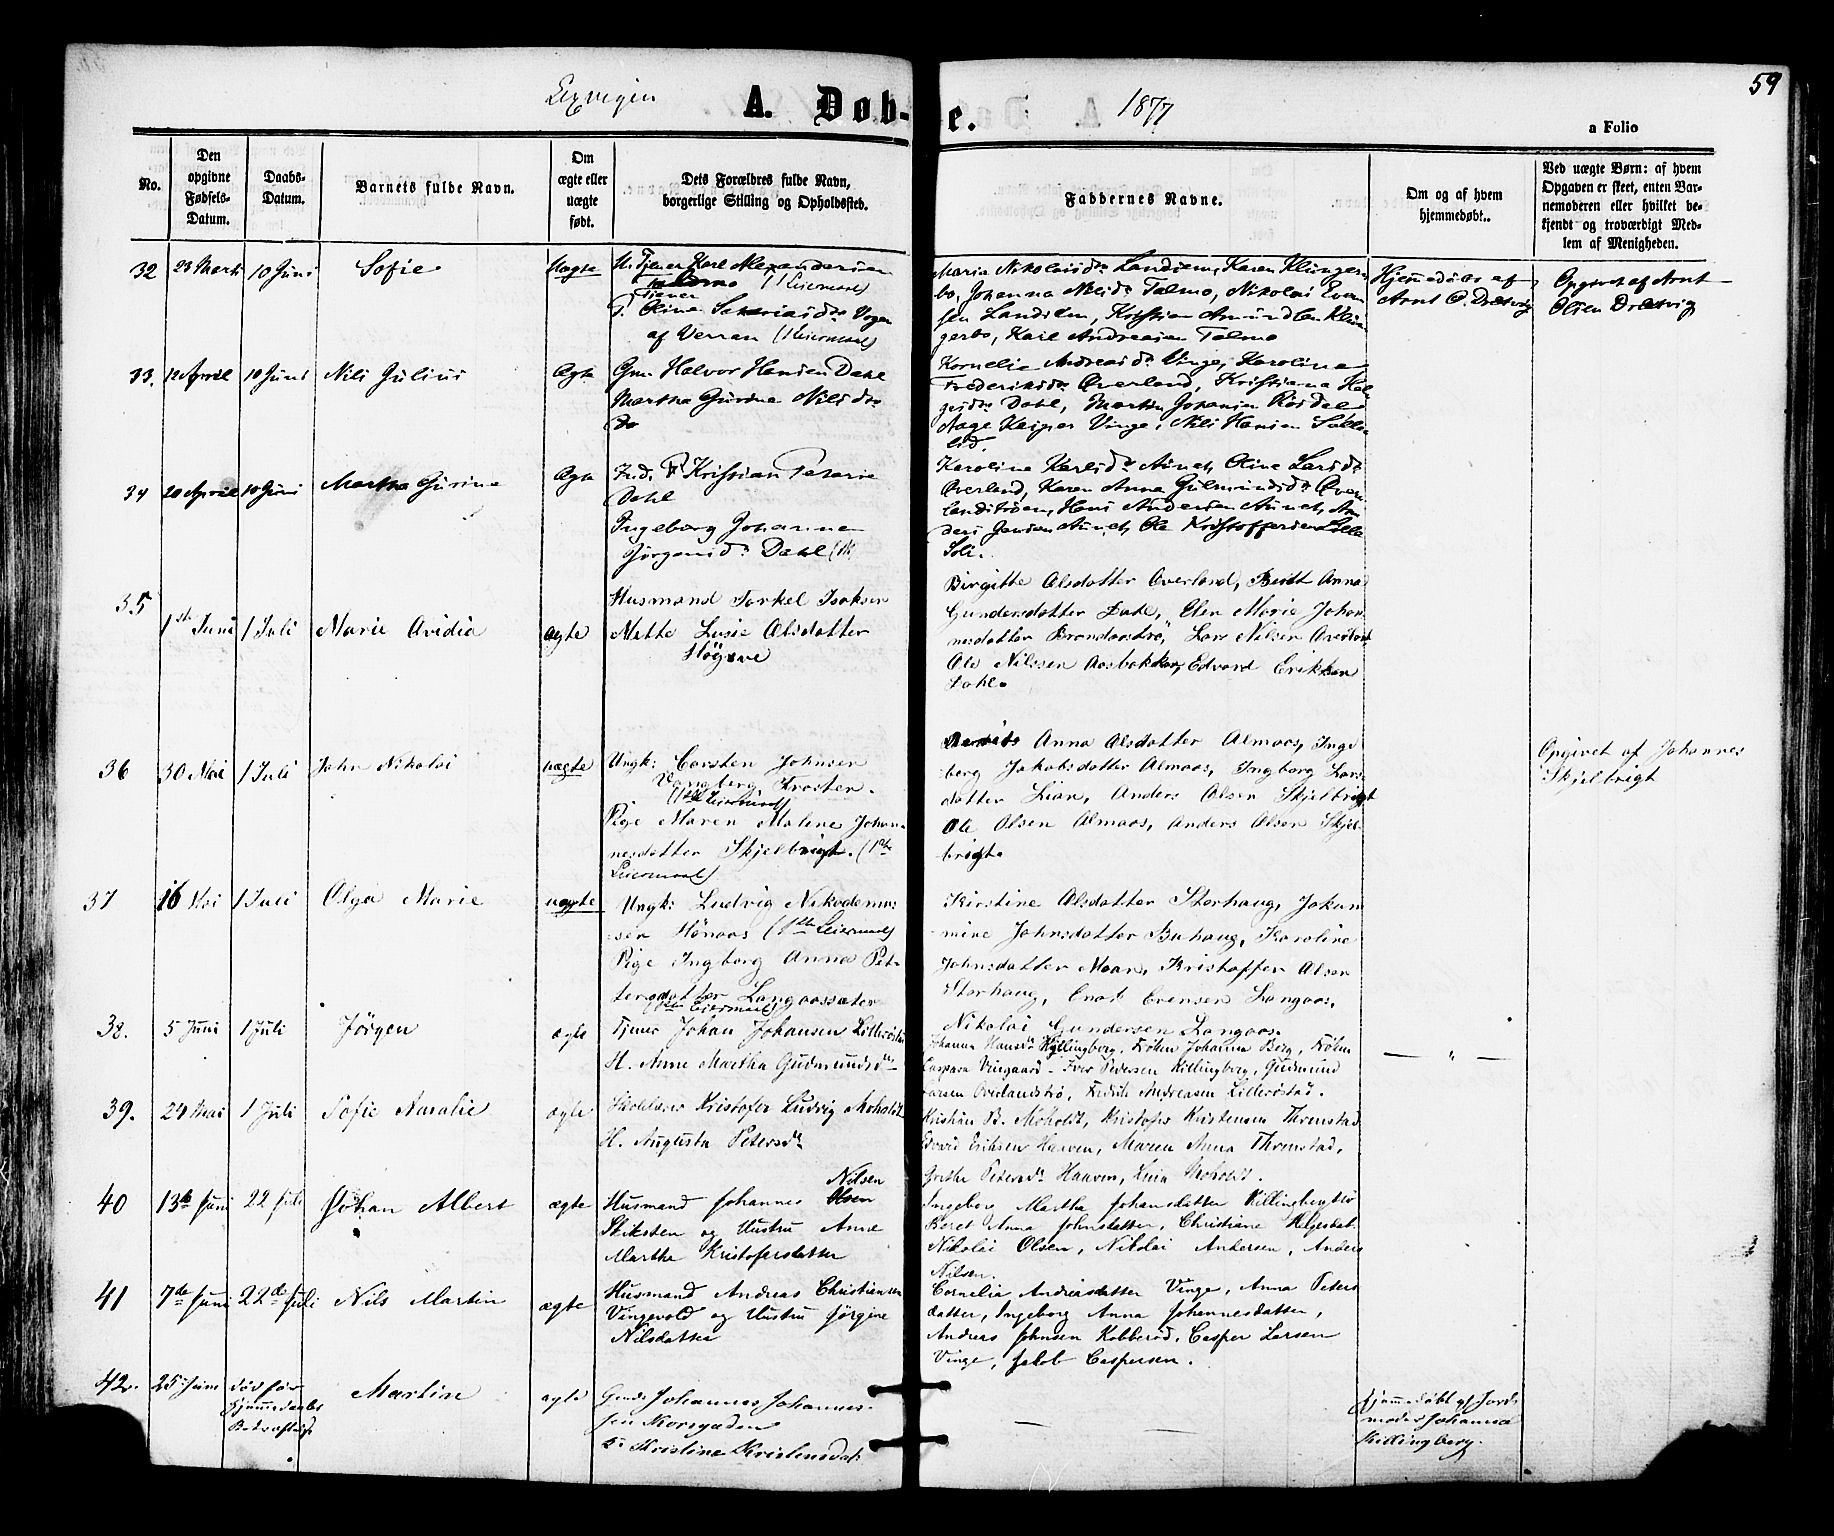 59
Lexvigen A. Døb-e. 1877
a Folio
No.
Den opgivne Fødsels-Datum.
Daabs-Datum.
Barnets fulde Navn.
Om ægte eller uægte født.
Dets Forældres fulde Navn,
borgerlige Stilling og Opholdssted.
Faddernes Navne.
Om og af hvem
hjemmedøbt.
Ved uægte Børn: af hvem
Opgaven er skeet, enten Bar-
nemoderen eller hvilket be-
kjendt og troværdigt Med-
lem af Menigheden.
32 23 Marts 10 Juni Sofie Uægte
Tjener Karl Alexandersen
(1 Leiermaal)
Tjener
Oline Sakariasdr Vogen
af Verran (1 Leiermaal)
Maria Nikolaisdr Landsem, Karen Klunger-
bo, Johanna Nilsdr Talmo, Nikolai Even-
sen Landsem, Kristian Amundsen Klun-
gerbo, Karl Andreassen Talmo
Hjemmedøbt af
Arnt O. Dretvig
Opgivet af Arnt
Olsen Dretsvig
33. 12 April 10 Juni Nils Julius Ægte
Gm. Halvor Hansen Dahl
Martha Gurine Nilsdr
Do
Kornelia Andreasdr Vinge, Karolina
Frederiksdr Overland, Kristiana Hal-
gesdr Dahl, Martin Johansen
Aage Kasper Vinge, Nils Hansen
34 20 April 10 Juni Martha Gurine Ægte
Kristian Petersen
Dahl
Ingeborg Johanna
Jørgensdr Dahl
Karoline Karlsdr Aunet, Oline Larsdr
Overland, Karen Anna Gulmundsdr Over-
landstrøen, Hans Andersen Aunet, An-
ders Jensen Aunet, Ole Kristoffersen Lille
35 1ste Juni 1 Juli Marie Avidia ægte
Husmand Torkel Isaksen
Mette Lusie Olsdatter
Høgsve
Birgitte Olsdatter Overland, Berit Anna
Gundersdatter Dahl, Elen Marie Johan-
nesdatter Brandaastrø, Lars Nilsen Overland,
Ole Nilssen Aasbakken, Edvard Erikksen
Dahl.
36 30 Mai 1 Juli John Nikolai uægte
Ungk: Carsten Johnsen
Vangberg, Frosten.
(1ste Leiermaal)
Pige Maren Malene Johan-
nesdatter Skjelbrigt. (1ste
Leiermaal)
Anna Olsdatter Almaas, Inge-
berg Jakobsdatter Almaas, Ingborg Lars-
datter Lian, Anders Olsen Skjelbrigt
Ole Olsen Almaas, Anders Olsen Skjel-
brigt.
Opgivet af Johannes
Skjelbrigt
37 16 Mai 1 Juli Olga Marie uægte
Ungk: Ludvig Nikodemus-
sen Hønaas (1ste Leiermaal)
Pige Ingborg Anna Pet-
tersdatter Langaassæter
(1ste Leiermaal)
Kirstine Olsdatter Storhaug, Johan-
mine Johnsdatter Buhaug, Karoline
Johnsdatter Moan, Kristoffer Olsen
Storhaug, Enok Evensen Langaas,
Nikolai Gundersen Langaas.
38. 5 Juni 1 Juli Jørgen ægte
Tjener Johan Johansen Lillerøstad
H. Anne Martha Gudmundsdr
Johanna Hansdr Kyllingberg, Frøken Johanna Berg, Frøken
Caspara Vingaard - Iver Pedersen Killingberg, Gudmund
Larsen Overlandstrø, Fredrik Andreasen Lillerøstad.
— " —
39. 24 Mai 1 Juli Sofie Natalie ægte
Skolelærer Kristofer Ludvig Moholdt
H. Augusta Petersdr
Kristian B. Moholdt, Kristofer Kristensen Thronstad
Edvard Eriksen Haaven, Maren Anna Thronstad,
Grethe Petersdr Haaven, Lina Moholdt.
40 13de Juni 22 Juli Johan Albert ægte
Nilsen
Husmand Johannes Olsen
Skiksten og Hustru Anne
Martha Kristofersdatter
Ingeborg Martha Johansdatter Killingbergtrø
Beret Anna Johnsdatter, Christiane Helgesdat.
Nikolai Olsen, Nikolai Andersen, Anders
Nilsen.
41 7de Juni 22de Juli Nils Martin ægte
Husmand Andreas Christiansen
Vingevold og Hustru Jørgine
Nilsdatter
Cornelia Andreasdatter Vinge, Anna Peters-
datter, Ingeborg Anna Johannesdatter,
Andreas Johnsen Kobberød, Casper Larsen
Vinge, Jakob Caspersen.
42. 25 Juni død før
Hjemmedaabs
Bekræftelse
Martine ægte
Gaardm. Johannes Johannes-
sen Morsgaden
Kristine Kristensdat.
—
Hjemmedøbt af Jord-
moder Johanna
Killingberg.